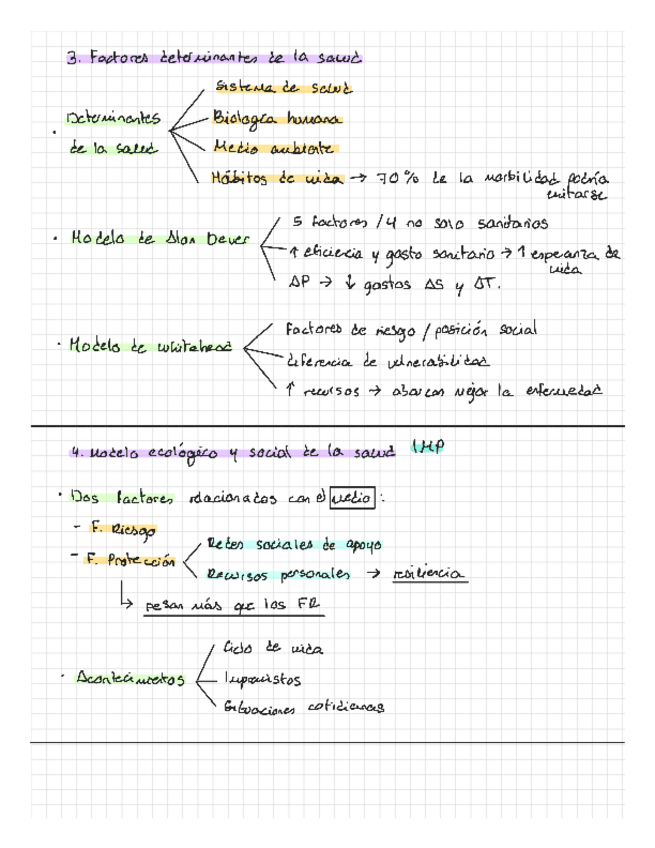 3. Factores determinantes de la salud
Determinantes de la salud
Sistema de salud
Biología humana
Medio ambiente
Hábitos de vida → 70% de la morbilidad podría evitarse
· Modelo de Alan Dever
5 factores / 4 no solo sanitarios
↑ eficiencia y gasto sanitario → ↑ esperanza de vida
AP → ↓ gastos AS y AT.
· Modelo de Whitehead
Factores de riesgo / posición social
diferencia de vulnerabilidad
↑ recursos → abarcan mejor la enfermedad
4. Modelo ecológico y social de la salud IMP
· Dos factores relacionados con el medio:
- F. Riesgo
- F. Protección
Redes sociales de apoyo
Recursos personales → resiliencia
↳ pesan más que los FR
· Acontecimientos
Ciclo de vida
Imprevistos
Situaciones cotidianas